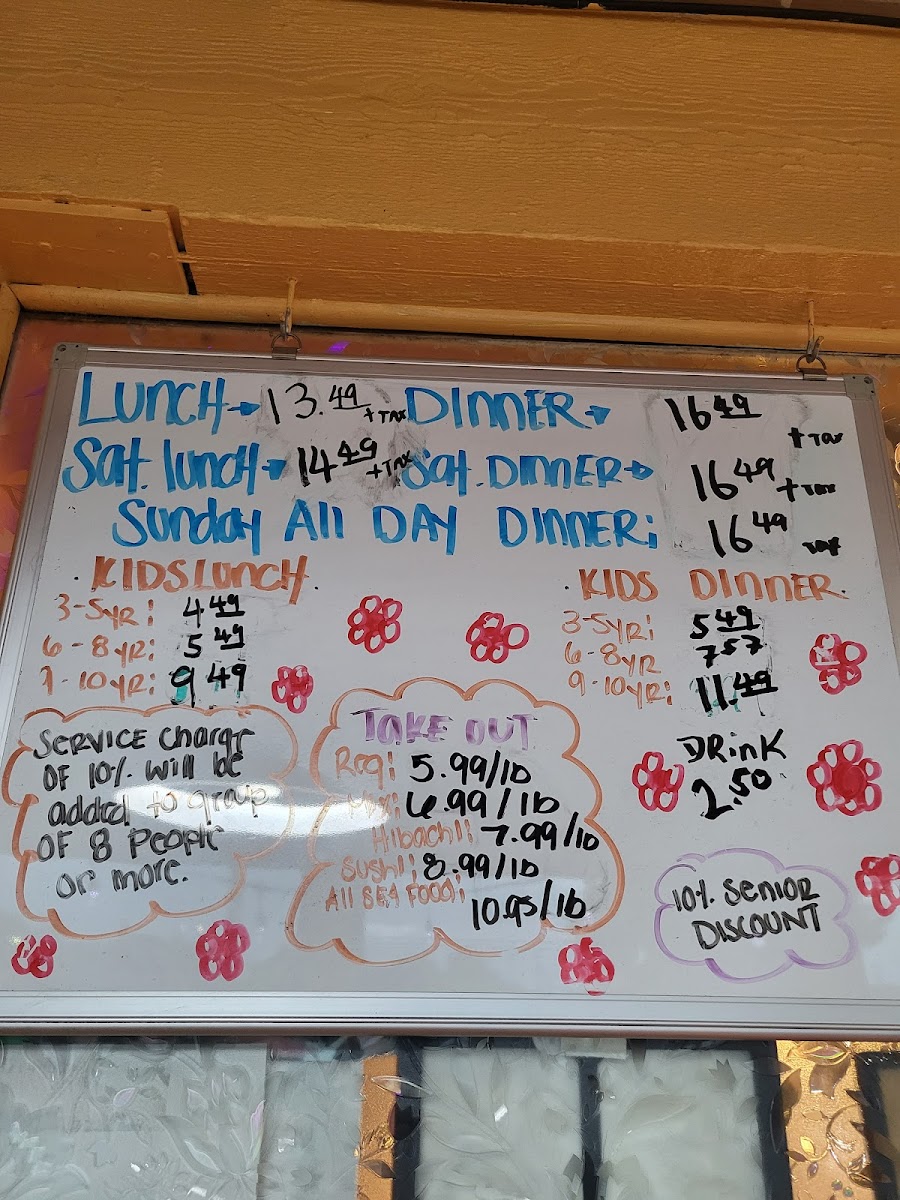 LUNCH → 13.49 + TAX DINNER → 16 49 + Tax
Sat. lunch → 14 49 + TAX Sat. DINNER → 16 49 + Tax
Sunday All DAY DINNER: 16 49 Tax
KIDS LUNCH
3-5yr: 4 49
6-8yr: 5 49
9-10yr: 9 49
KIDS DINNER
3-5yr: 5 49
6-8yr 7 57
9-10yr: 11 49
SERVICE charge
OF 10% will be
added to group
OF 8 People
or more.
TAKE OUT
Reg: 5.99/lb
Mix: 6.99/lb
Hibachi: 7.99/lb
Sushi: 8.99/lb
All SEA FOOD:
10.95/lb
DRinK
2.50
10% SENIOR
DISCOUNT